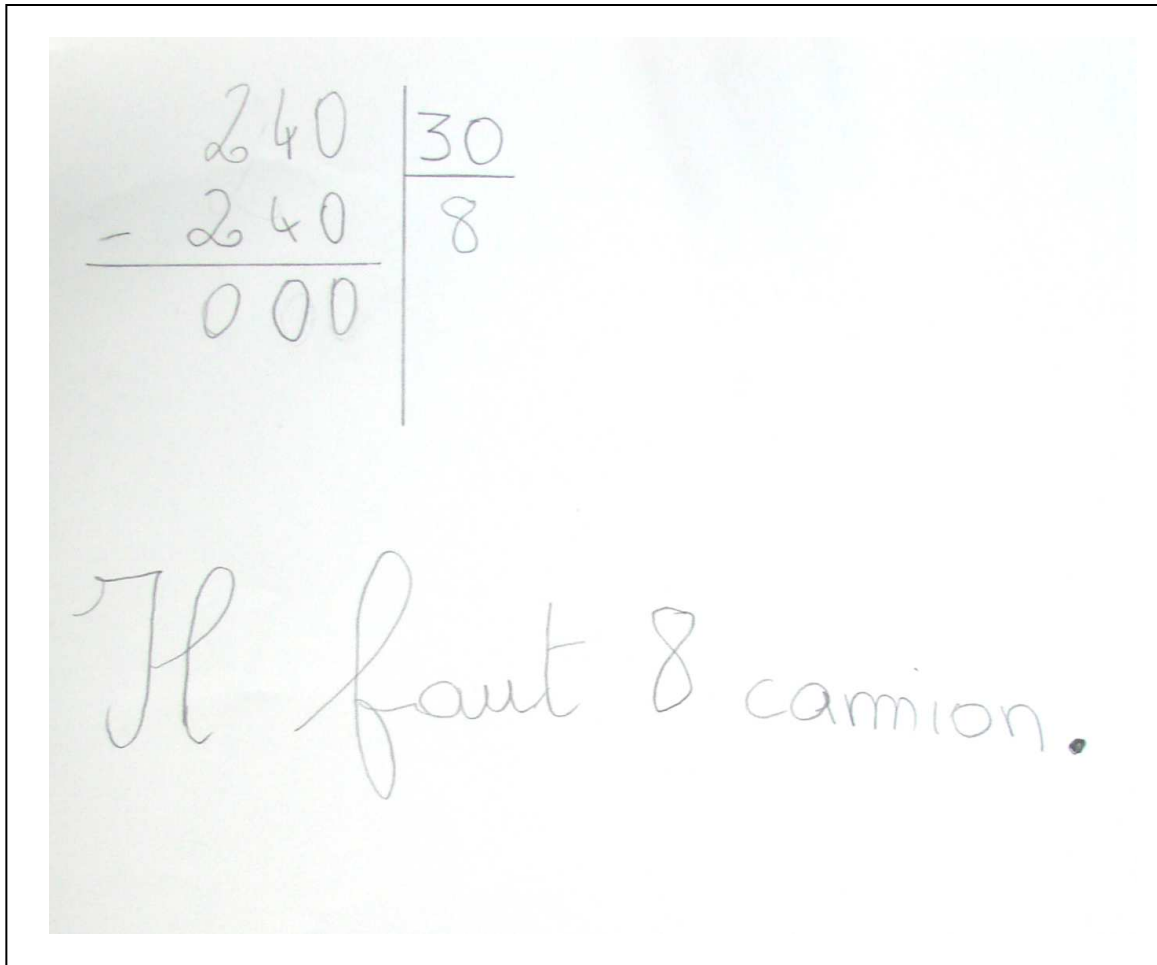 240 | 30
- 240 | 8
000
Il faut 8 camion.